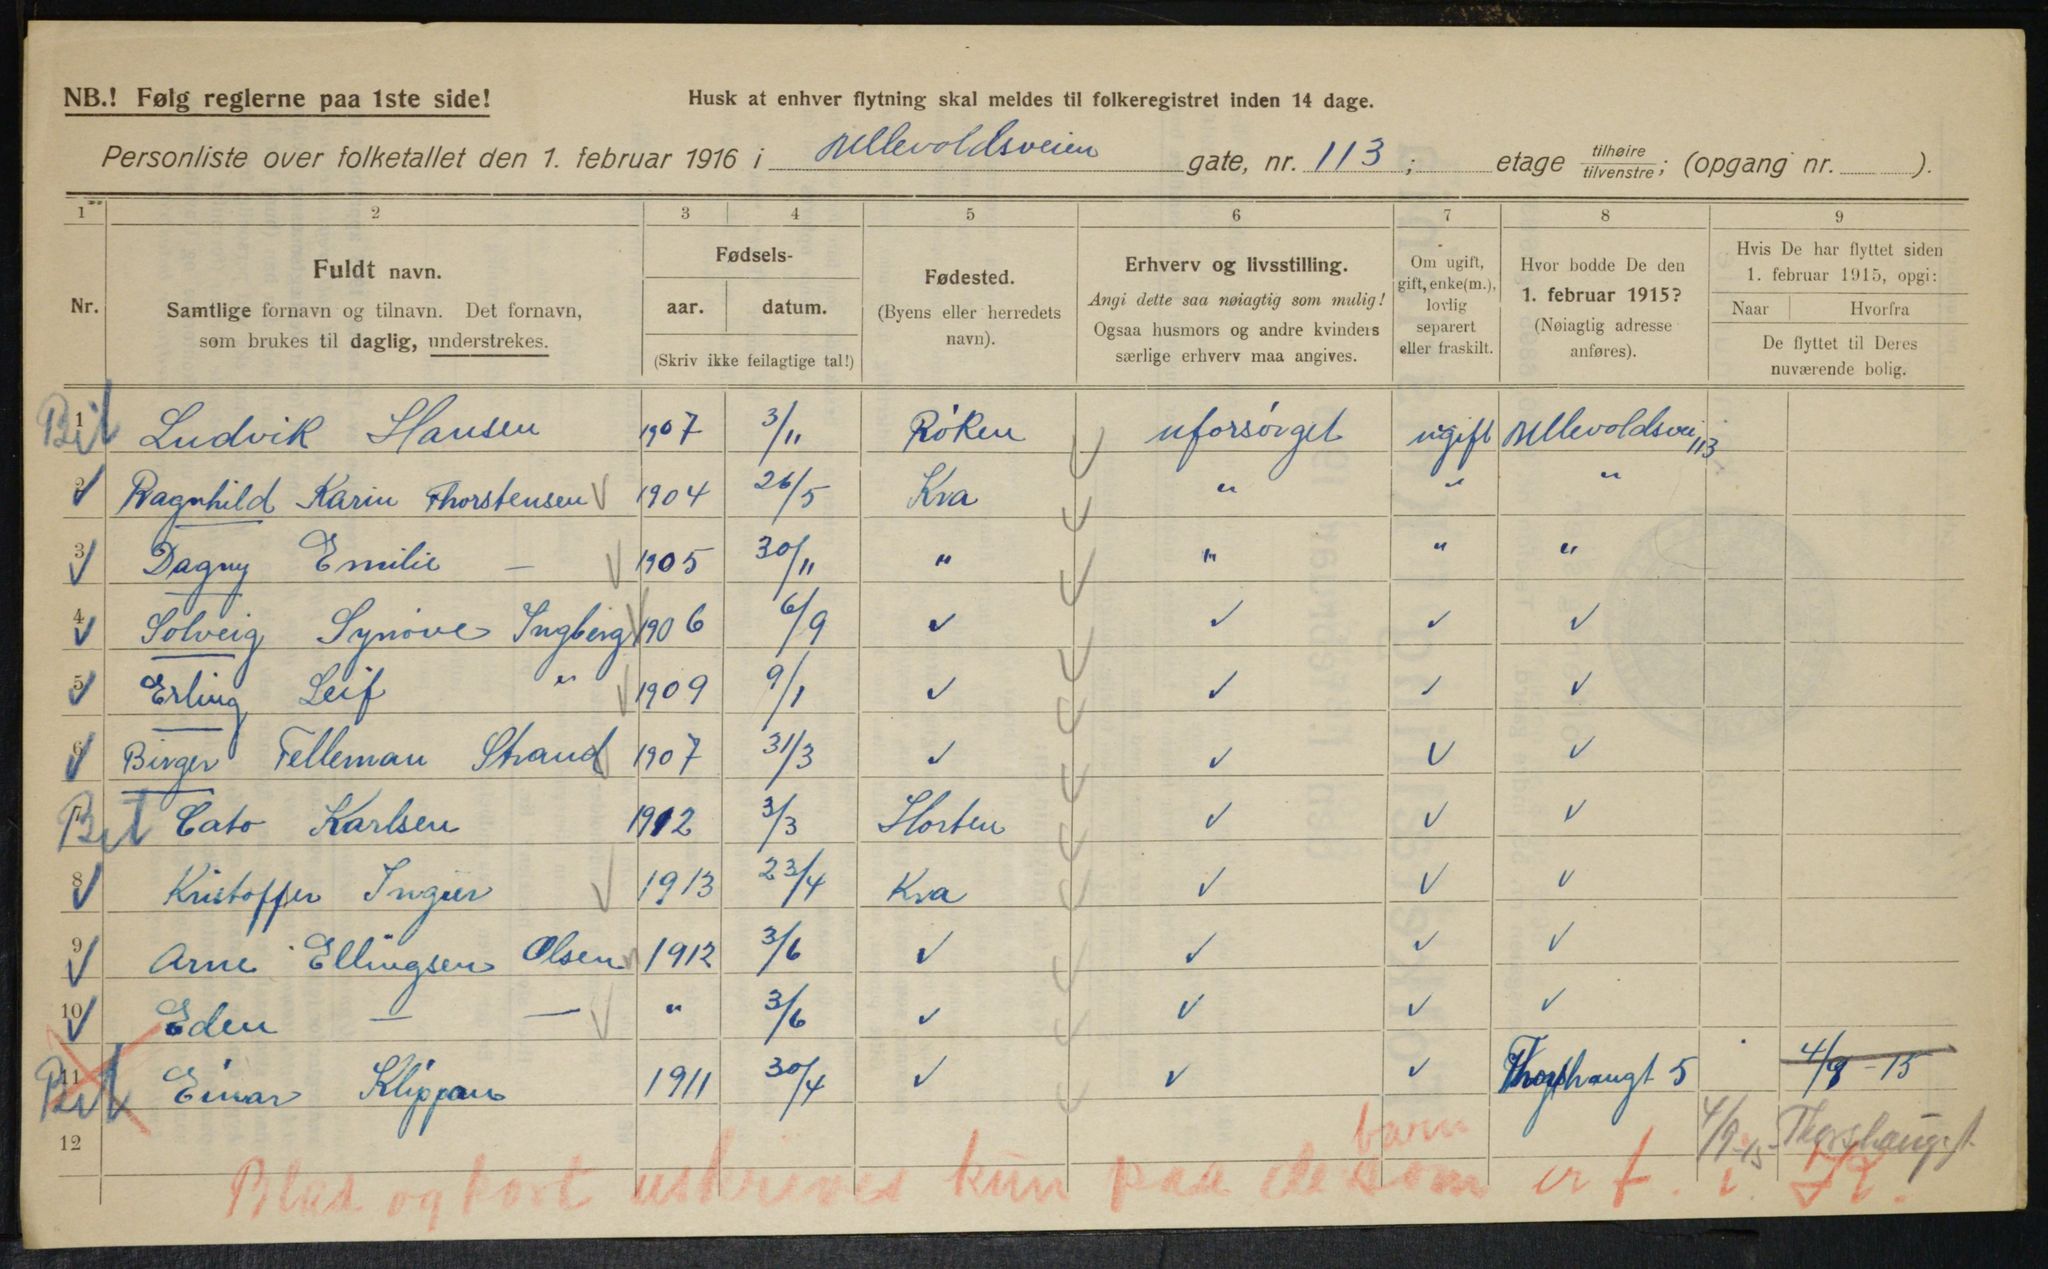 NB.! Følg reglerne paa 1ste side!
Husk at enhver flytning skal meldes til folkeregistret inden 14 dage.
Personliste over folketallet den 1. februar 1916 i Ullevoldsveien gate, nr. 113; etage tilhøire / tilvenstre; (opgang nr. ).
1 2 3 4 5 6 7 8 9
Nr. Fuldt navn. Samtlige fornavn og tilnavn. Det fornavn, som brukes til daglig, understrekes.
Fødsels- aar. datum. (Skriv ikke feilagtige tal!)
Fødested. (Byens eller herredets navn).
Erhverv og livsstilling. Angi dette saa nøiagtig som mulig! Ogsaa husmors og andre kvinders særlige erhverv maa angives.
Om ugift, gift, enke(m.), lovlig separert eller fraskilt.
Hvor bodde De den 1. februar 1915? (Nøiagtig adresse anføres).
Hvis De har flyttet siden 1. februar 1915, opgi: Naar Hvorfra De flyttet til Deres nuværende bolig.
Bil 1 Ludvik Hansen 1907 3/11 Røken uforsørget ugift Ullevoldsvei 113
2 Ragnhild Karin Thorstensen 1904 26/5 Kra " " "
3 Dagny Emilie — 1905 30/11 " " " "
4 Solveig Synøve Ingberg 1906 6/9 ✓ ✓ ✓ ✓
5 Erling Leif " 1909 9/1 ✓ ✓ ✓ ✓
6 Birger Felleman Strand 1907 31/3 ✓ ✓ ✓ ✓
Bil 7 Cato Karlsen 1912 3/3 Horten ✓ ✓ ✓
8 Kristoffer Ingier 1913 23/4 Kra ✓ ✓ ✓
9 Arne Ellingsen Olsen 1912 3/6 ✓ ✓ ✓ ✓
10 Eden — — " 3/6 ✓ ✓ ✓ ✓
Bil 11 Einar Klippan 1911 30/4 ✓ ✓ ✓ Thorshaugt 5 4/9 - 15
12 4/9-15 Thorshaugt.
Blad og kort uskrives kun paa de barn som er f. i